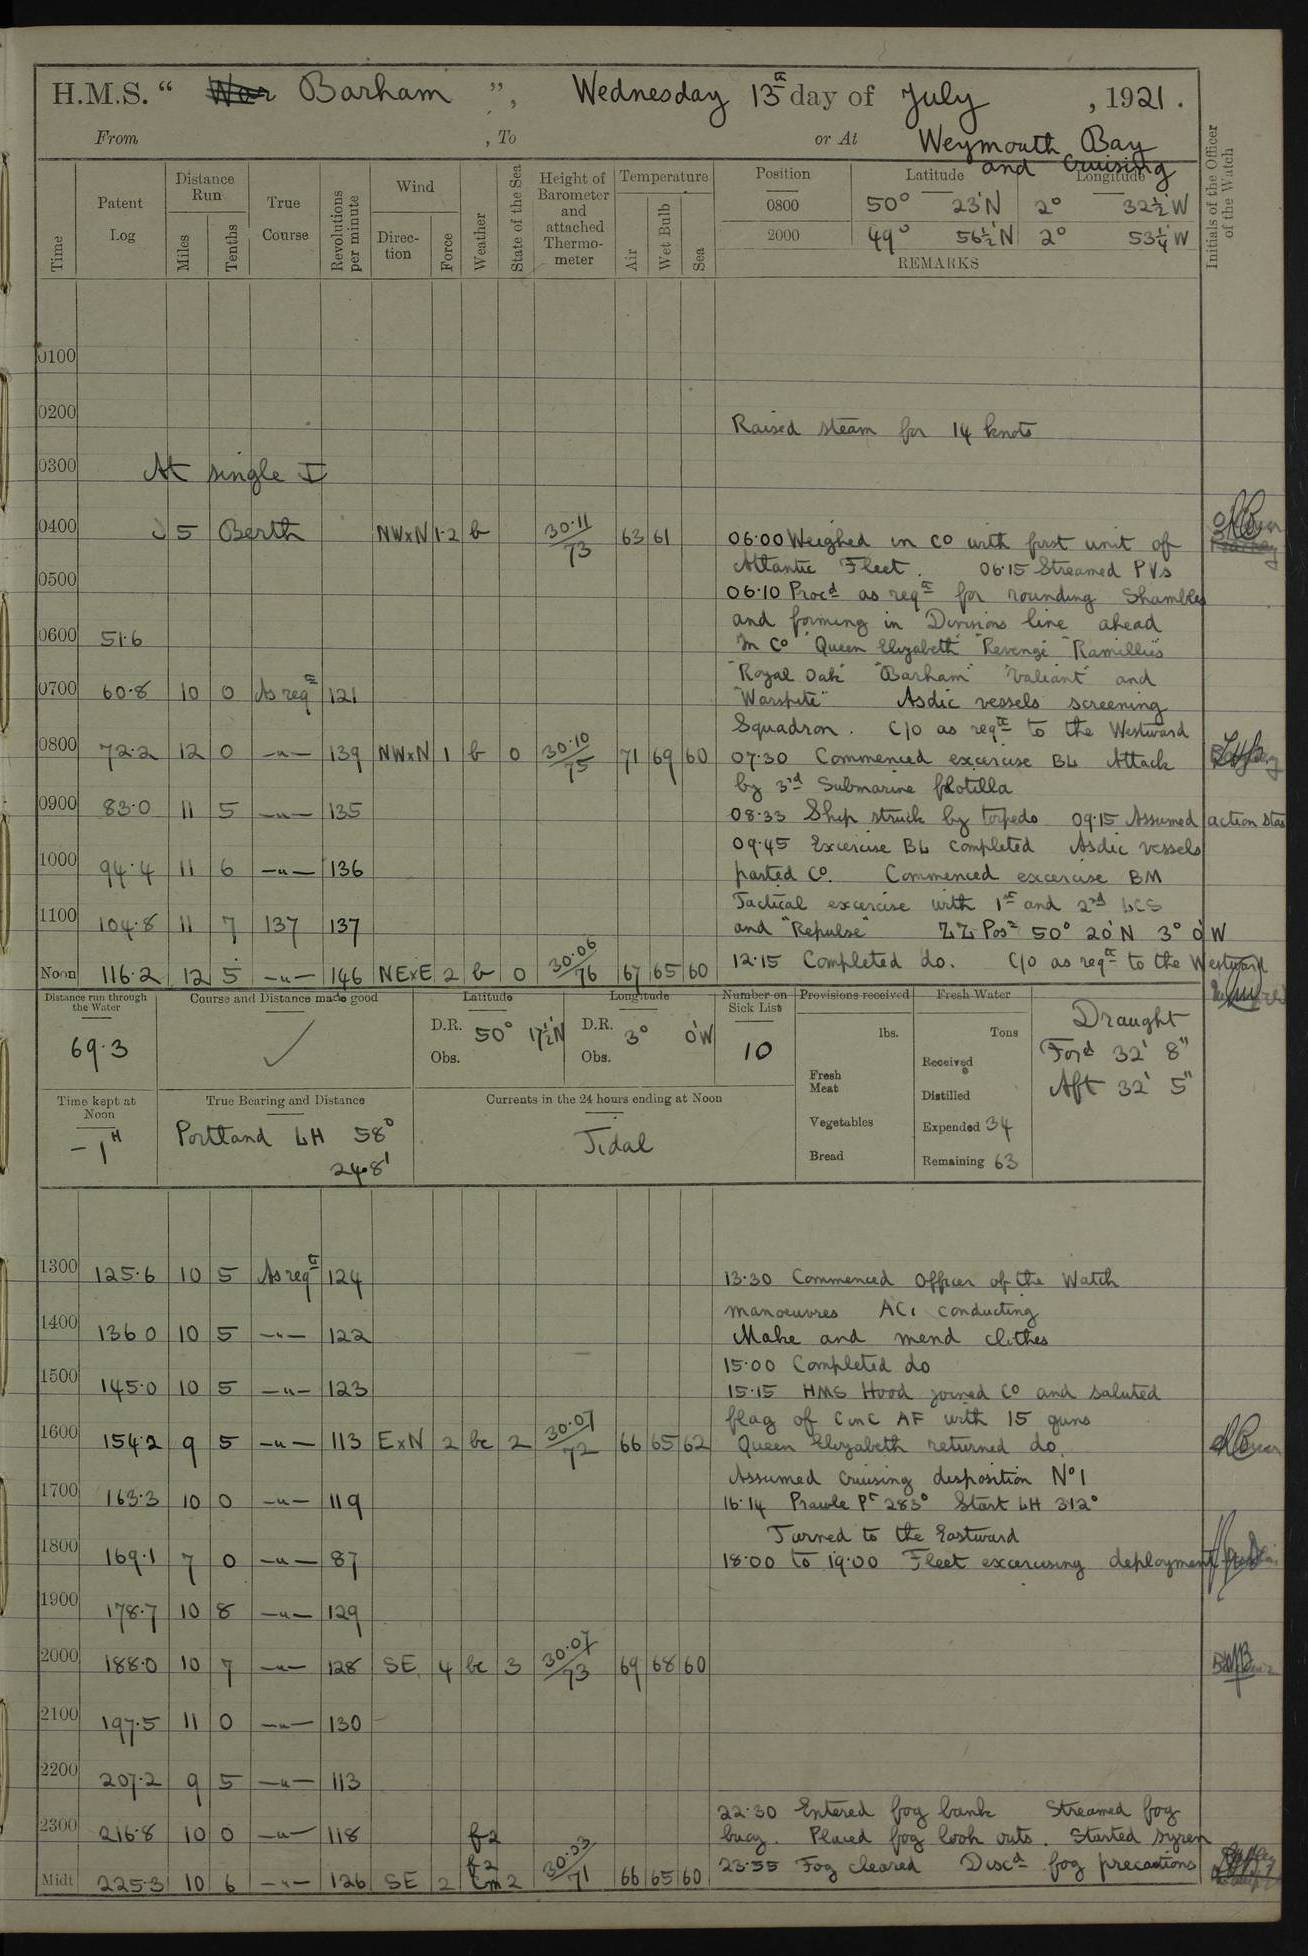 H.M.S. “ War Barham ”, Wednesday 13th day of July , 1921 .
From , To or At Weymouth Bay
and Cruising
Time Patent Log Distance Run Miles Tenths True Course Revolutions per minute Wind Direction Force Weather State of the Sea Height of Barometer and attached Thermometer Temperature Air Wet Bulb Sea Position Latitude Longitude Initials of the Officer of the Watch
0800 50° 23'N 2° 32½'W
2000 49° 56½'N 2° 53¼'W
REMARKS
0100
0200
Raised steam for 14 knots
0300 At single I
0400 5 Berth NWxN 1·2 b 30·11/73 63 61 06·00 Weighed in Co with first unit of
Atlantic Fleet. 06·15 Streamed PVs
0500
06·10 Procd as reqte for rounding Shambles
and forming in Divisions line ahead
0600 51·6 In Co "Queen Elizabeth" "Revenge" "Ramillies"
"Royal Oak" "Barham" "Valiant" and
0700 60·8 10 0 As reqte 121 "Warspite" Asdic vessels screening
Squadron. C/o as reqte to the Westward
0800 72·2 12 0 —"— 139 NWxN 1 b 0 30·10/75 71 69 60 07·30 Commenced excercise BL Attack
by 3rd Submarine flotilla
0900 83·0 11 5 —"— 135 08·33 Ship struck by torpedo 09·15 Assumed action stas
09·45 Excercise BL completed Asdic vessels
1000 94·4 11 6 —"— 136 parted Co. Commenced excercise BM
Tactical excercise with 1st and 2nd LCS
1100 104·8 11 7 137 137 and "Repulse" ZZ Posn 50° 20'N 3° 0'W
Noon 116·2 12 5 —"— 146 NExE 2 b 0 30·06/76 67 65 60 12·15 Completed do. C/o as reqte to the Westward
Distance run through the Water Course and Distance made good Latitude Longitude Number on Sick List Provisions received Fresh Water
69·3 D.R. 50° 17½'N D.R. 3° 0'W 10 lbs. Tons Draught
Obs. Obs. Fresh Meat Received Ford 32' 8"
Distilled Aft 32' 5"
Time kept at Noon True Bearing and Distance Currents in the 24 hours ending at Noon
Vegetables Expended 34
-1H Portland LH 58° Tidal
24·8' Bread Remaining 63
1300 125·6 10 5 As reqte 124 13·30 Commenced Officer of the Watch
manoeuvres AC1 conducting
1400 136 0 10 5 —"— 122 Make and mend clothes
15·00 Completed do
1500 145·0 10 5 —"— 123 15·15 HMS Hood joined Co and saluted
flag of CinC AF with 15 guns
1600 154·2 9 5 —"— 113 ExN 2 bc 2 30·07/72 66 65 62 Queen Elizabeth returned do.
Assumed cruising disposition No 1
1700 163·3 10 0 —"— 119 16·14 Prawle Pt 283° Start LH 312°
Turned to the Eastward
1800 169·1 7 0 —"— 87 18·00 to 19·00 Fleet excercising deployment
1900 178·7 10 8 —"— 129
2000 188·0 10 7 —"— 128 SE 4 bc 3 30·07/73 69 68 60
2100 197·5 11 0 —"— 130
2200 207·2 9 5 —"— 113
22·30 Entered fog bank Streamed fog
2300 216·8 10 0 —"— 118 f2 buoy. Placed fog look outs. Started syren
Midt 225·3 10 6 —"— 126 SE 2 f2 cm 2 30·03/71 66 65 60 23·55 Fog cleared Discd fog precautions